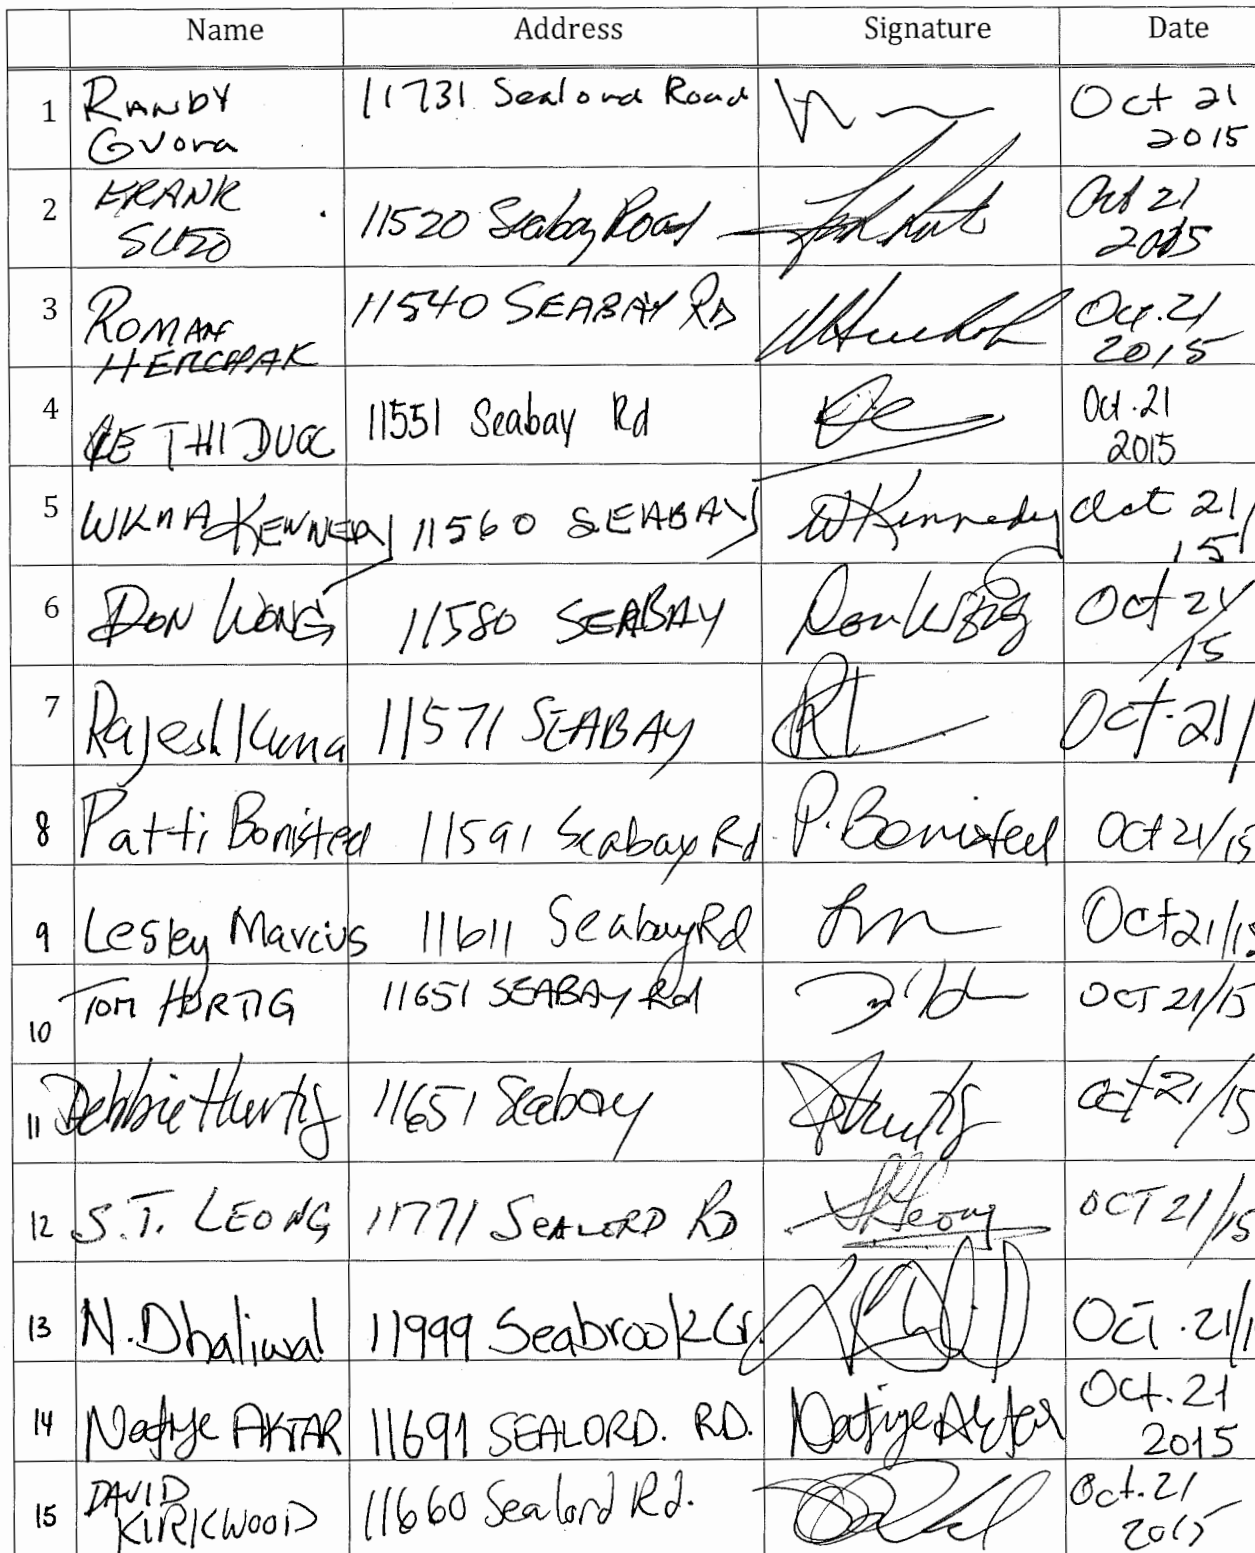 Name Address Signature Date
1 RANDY Gvora 11731 Sealord Road Oct 21 2015
2 FRANK SUTO 11520 Seabay Road Oct 21 2015
3 ROMAN 11540 SEABAY RD Oct. 21 2015
4 THI DUCC 11551 Seabay Rd Oct. 21 2015
5 KENNEDY 11560 SEABAY WKennedy Oct 21/15
6 DON WONG 11580 SEABAY Don Wong Oct 21/15
7 Rajesh Kuma 11571 SEABAY Oct. 21/
8 Patti Bonisteel 11591 Seabay Rd P. Bonisteel Oct 21/15
9 Lesley Marcius 11611 Seabay Rd Oct 21/15
10 TOM HURTIG 11651 SEABAY Rd OCT 21/15
11 Debbie Hurtig 11651 Seabay Oct 21/15
12 S.T. LEONG 11771 SEALORD RD Leong OCT 21/15
13 N. Dhaliwal 11999 Seabrook Cr. Oct. 21/1
14 Nafiye AKTAR 11691 SEALORD. RD. Nafiye Aktar Oct. 21 2015
15 DAVID KIRKWOOD 11660 Sealord Rd. Oct. 21 2015